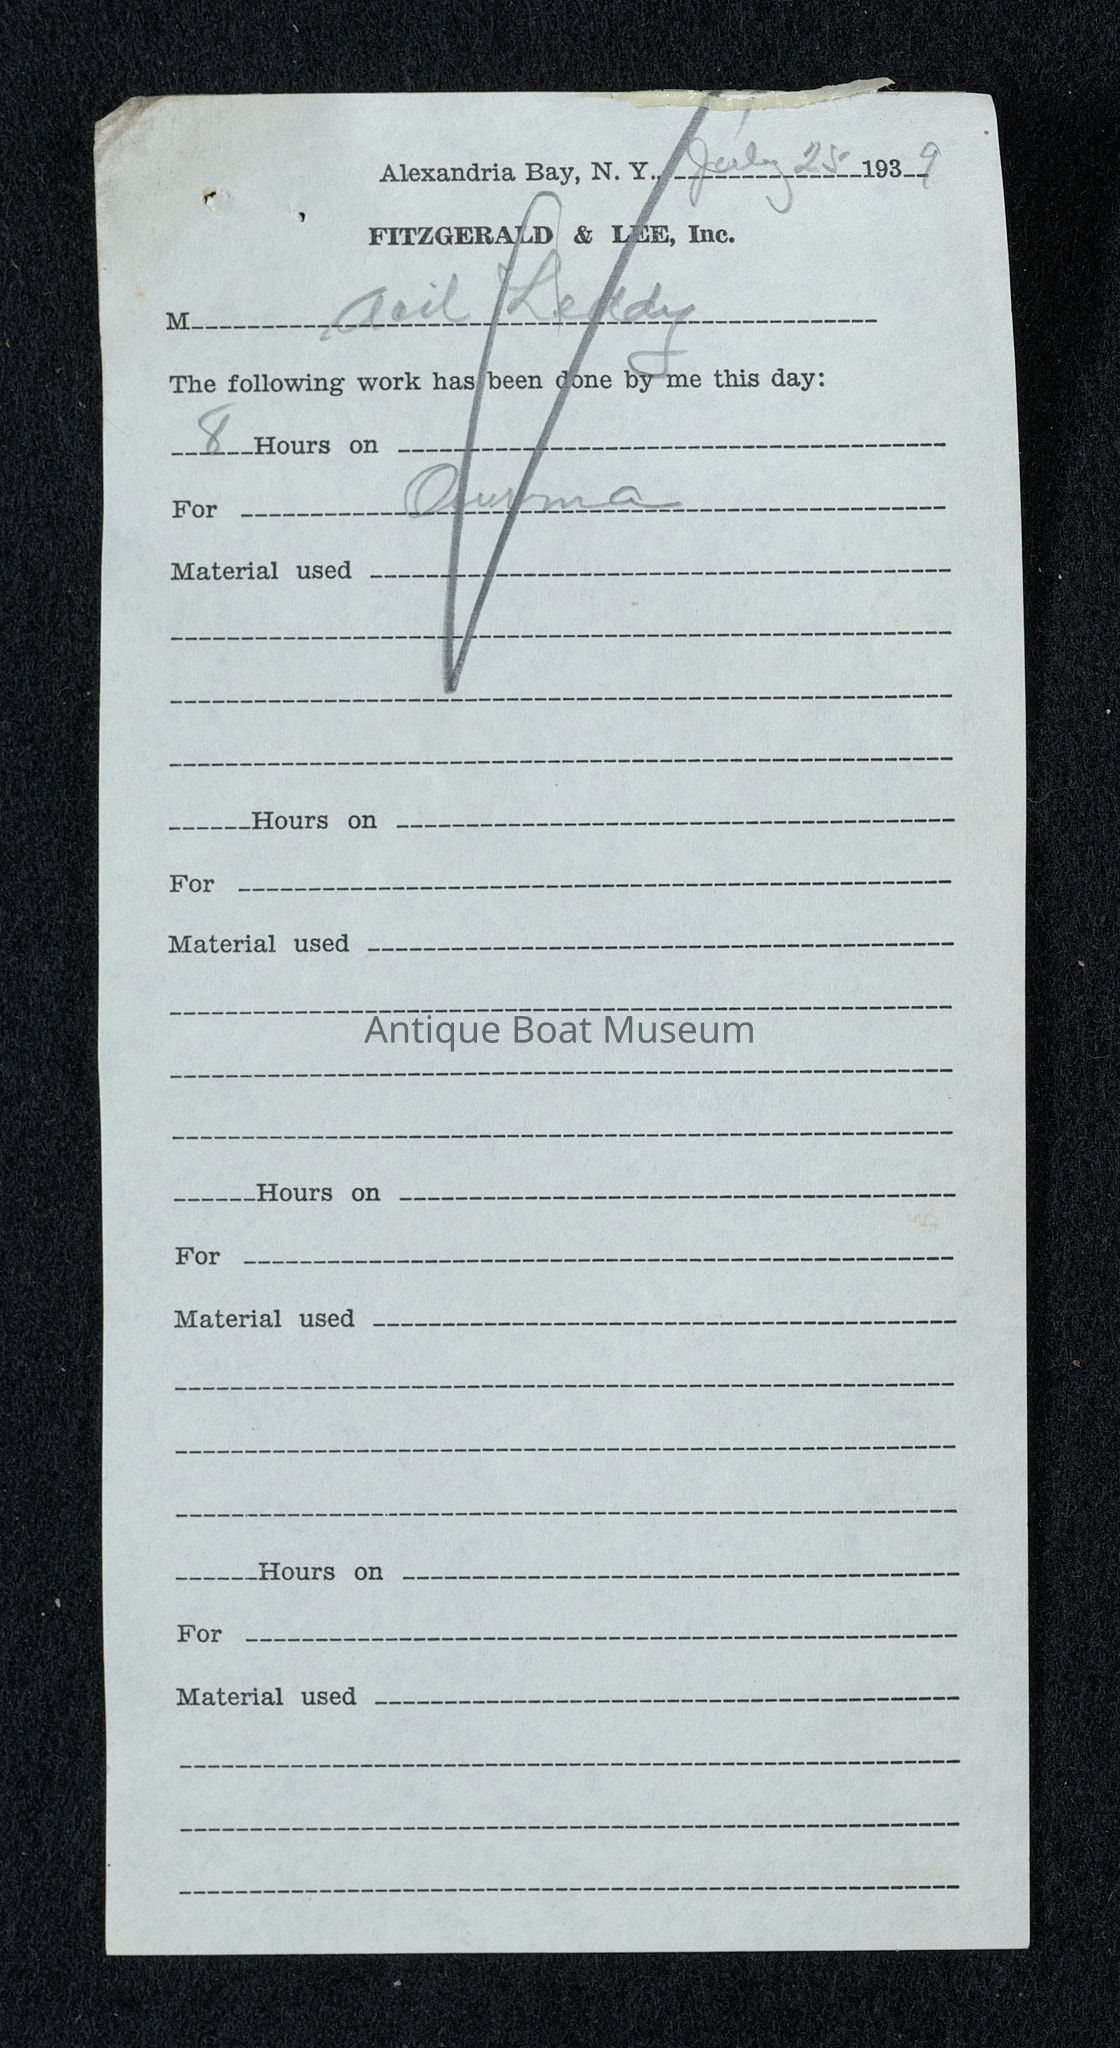 Alexandria Bay, N. Y., July 25 1939
FITZGERALD & LEE, Inc.
M Leddy
The following work has been done by me this day:
8 Hours on
For
Material used
Hours on
For
Material used
Antique Boat Museum
Hours on
For
Material used
Hours on
For
Material used